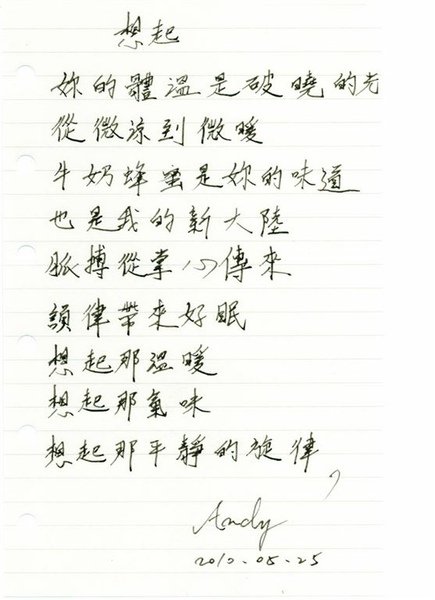 想起
妳的體溫是破曉的光
從微涼到微暖
牛奶蜂蜜是妳的味道
也是我的新大陸
脈搏從掌心傳來
韻律帶來好眠
想起那溫暖
想起那氣味
想起那平靜的旋律,
Andy
2010.05.25